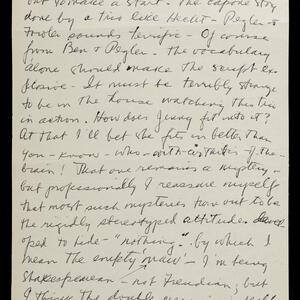 but to make a start - The Capone story
done by a trio like Hecht - Pegler &
Fowler sounds terrific - Of course
from Ben & Pegler - the vocabulary
alone should make the script ex-
plosive - It must be terribly strange
to be in the house watching this trio
in action. How does Jenny fit into it?
At that I'll bet she fits in better than
you - know - who - with - of - the -
brain! That one remains a mystery -
but professionally I reassure myself
that most such mysteries turn out to be
the rigidly stereotyped attitudes devel-
oped to hide - "nothing" - by which I
mean the empty - I'm being
Shakespearean - not Freudian; but
I think the double